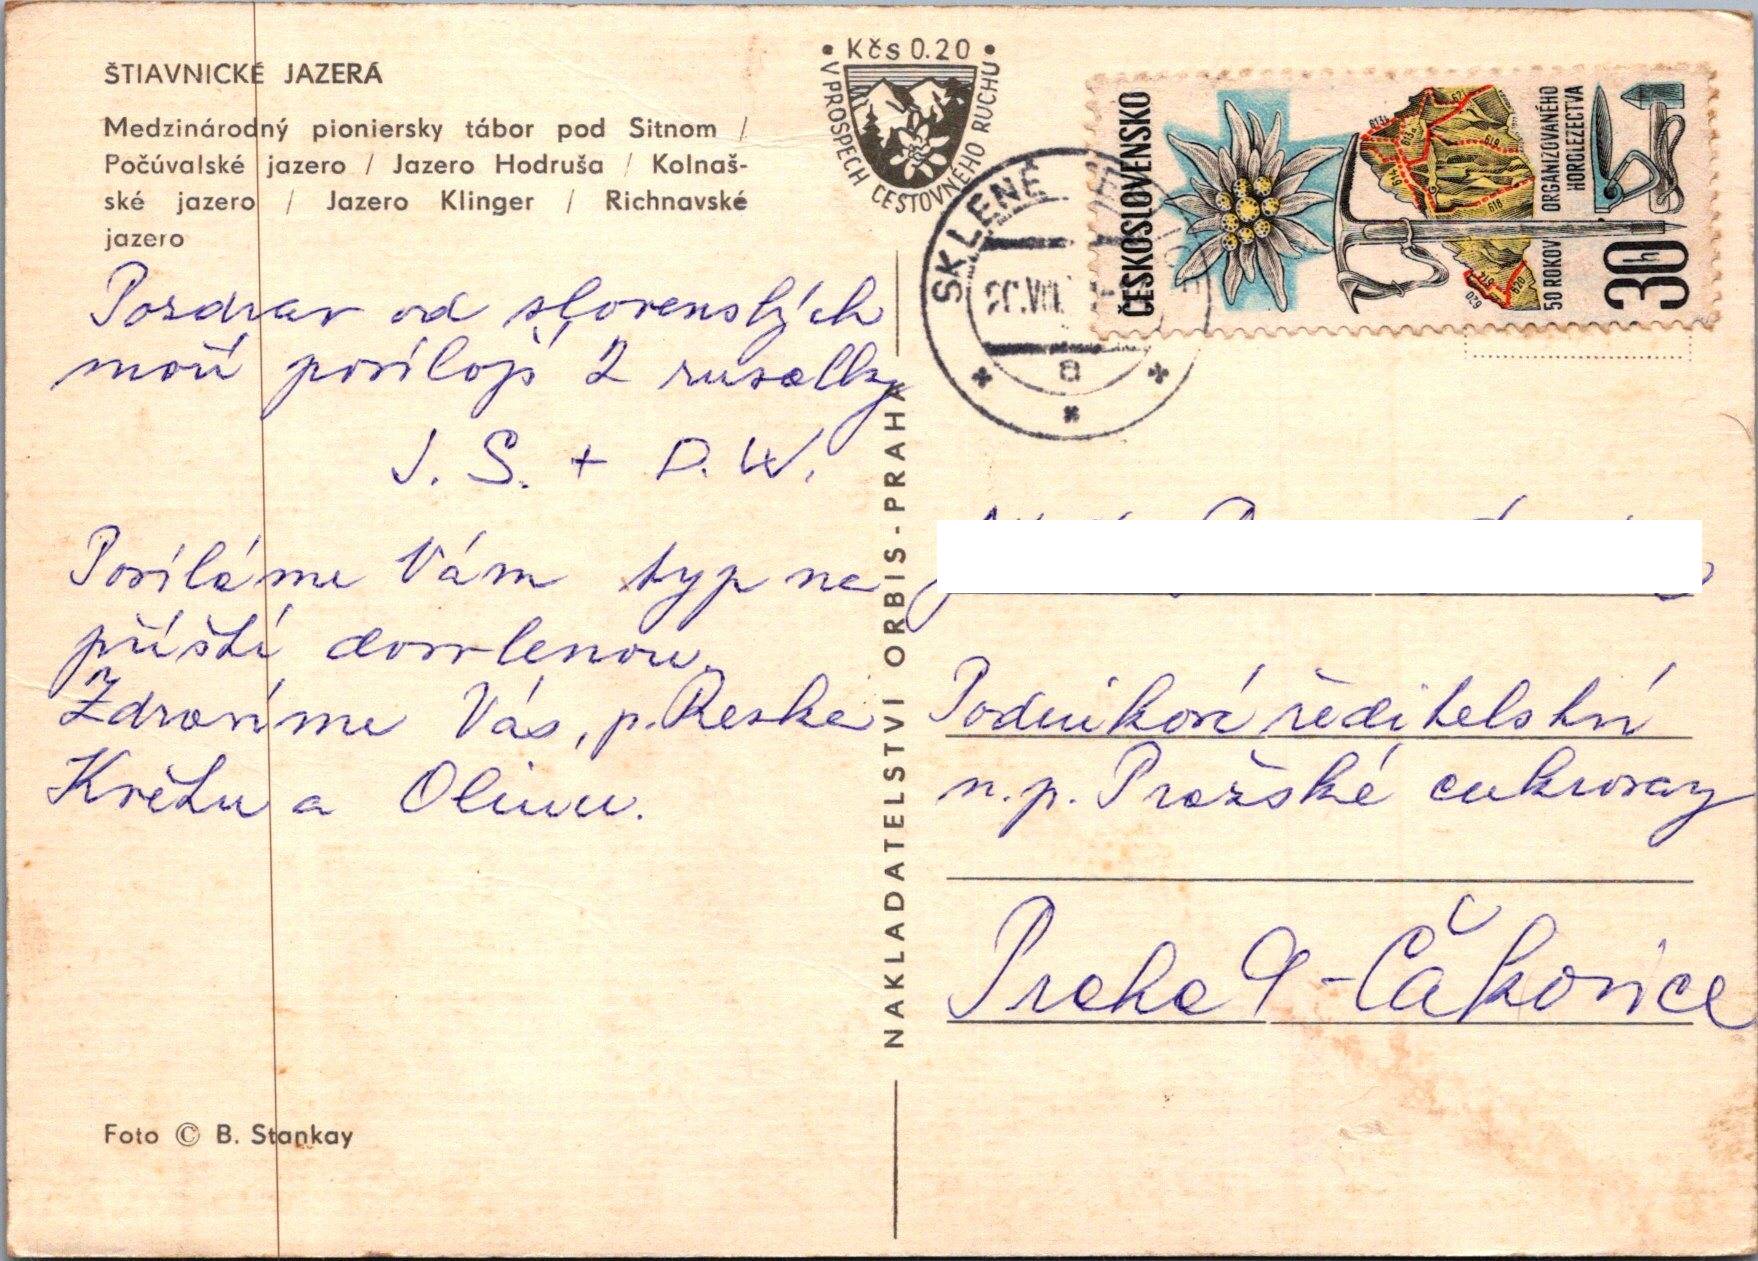 ŠTIAVNICKÉ JAZERÁ
Medzinárodný pioniersky tábor pod Sitnom /
Počúvalské jazero / Jazero Hodruša / Kolnaš-
ské jazero / Jazero Klinger / Richnavské
jazero
Pozdrav od slovenských
moří posílají 2 rusalky
J. S. + D. W.
Posíláme Vám typ na
příští dovolenou.
Zdravíme Vás, p.
Květu a
Foto © B. Stankay
NAKLADATELSTVÍ ORBIS - PRAHA
• Kčs 0.20 •
V PROSPECH CESTOVNÉHO RUCHU
SKLENÉ
a
ČESKOSLOVENSKO
50 ROKOV ORGANIZOVANÉHO
HOROLEZECTVA
30h
Podnikové ředitelství
n. p. Pražské cukrovary
Praha 9 - Čakovice